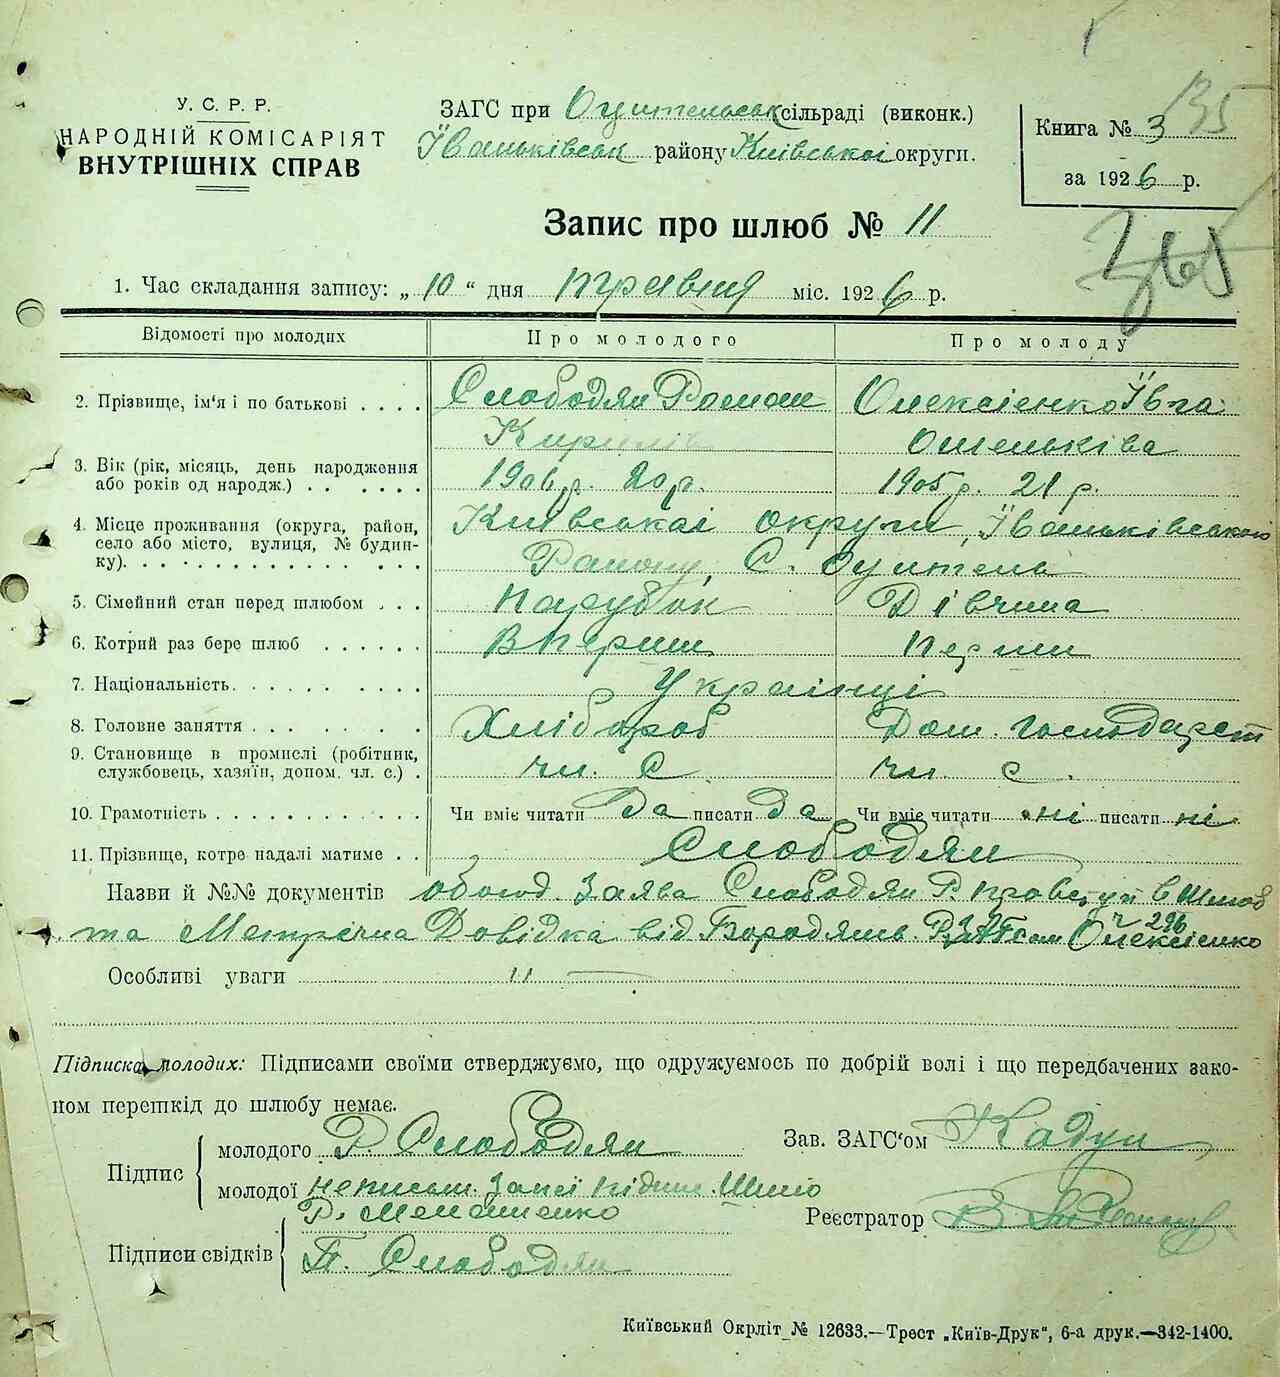 У. С. Р. Р.
НАРОДНІЙ КОМІСАРІЯТ
ВНУТРІШНІХ СПРАВ
ЗАГС при Оцительськ сільраді (виконк.)
Іваньківськ району Київської округи.
Книга № 3 35
за 1926 р.
Запис про шлюб № 11
1. Час складання запису: „10“ дня травня міс. 1926 р.
Відомості про молодих Про молодого Про молоду
2. Прізвище, ім'я і по батькові . . . . Слободян Роман Олексієнко Івга
Кирилів Омельківа
3. Вік (рік, місяць, день народження
або років од народж.) . . . . . . 1906 р. 20 р. 1905 р. 21 р.
4. Місце проживання (округа, район,
село або місто, вулиця, № будин-
ку). Київської округи, Іваньківського
Району, С. Оцитель
5. Сімейний стан перед шлюбом . . . Парубок Дівчина
6. Котрий раз бере шлюб . . . . . . Вперши перши
7. Національність. Українці
8. Головне заняття Хлібороб Дом. господарст
9. Становище в промислі (робітник,
службовець, хазяїн, допом. чл. с.) . чл. С. чл. с.
10. Грамотність Чи вміє читати Да писати Да Чи вміє читати ні писати ні
11. Прізвище, котре надалі матиме . . Слободян
Назви й №№ документів Заява Слободян Р. в Шлюб
та Метрична Довідка від Бородянь. Ч 296 Олексієнко
Особливі уваги 11 —
Підписка молодих: Підписами своїми стверджуємо, що одружуємось по добрій волі і що передбачених зако-
ном перешкід до шлюбу немає.
Підпис
молодого Р. Слободян
Зав. ЗАГС'ом
молодої неписьм.
Реєстратор
Підписи свідків
П. Слободян
Київський Окрліт № 12633.—Трест „Київ-Друк“, 6-а друк.—342-1400.